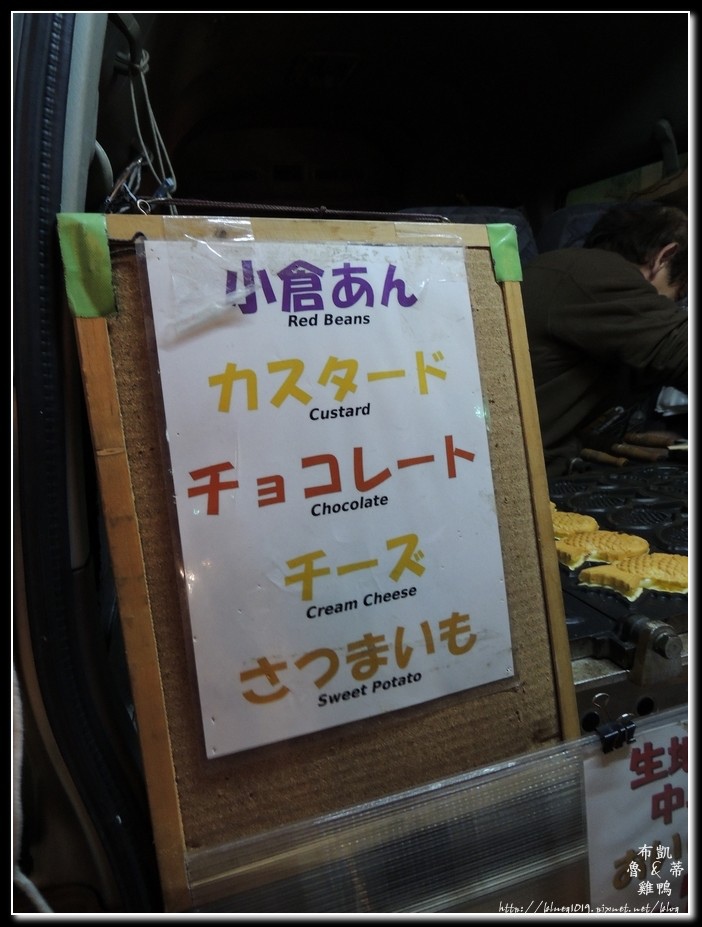 小倉あん
Red Beans
カスタード
Custard
チョコレート
Chocolate
チーズ
Cream Cheese
さつまいも
Sweet Potato
生地
中
布凱
魯&蒂
雞鴨
http://blueq1019.pixnet.net/blog